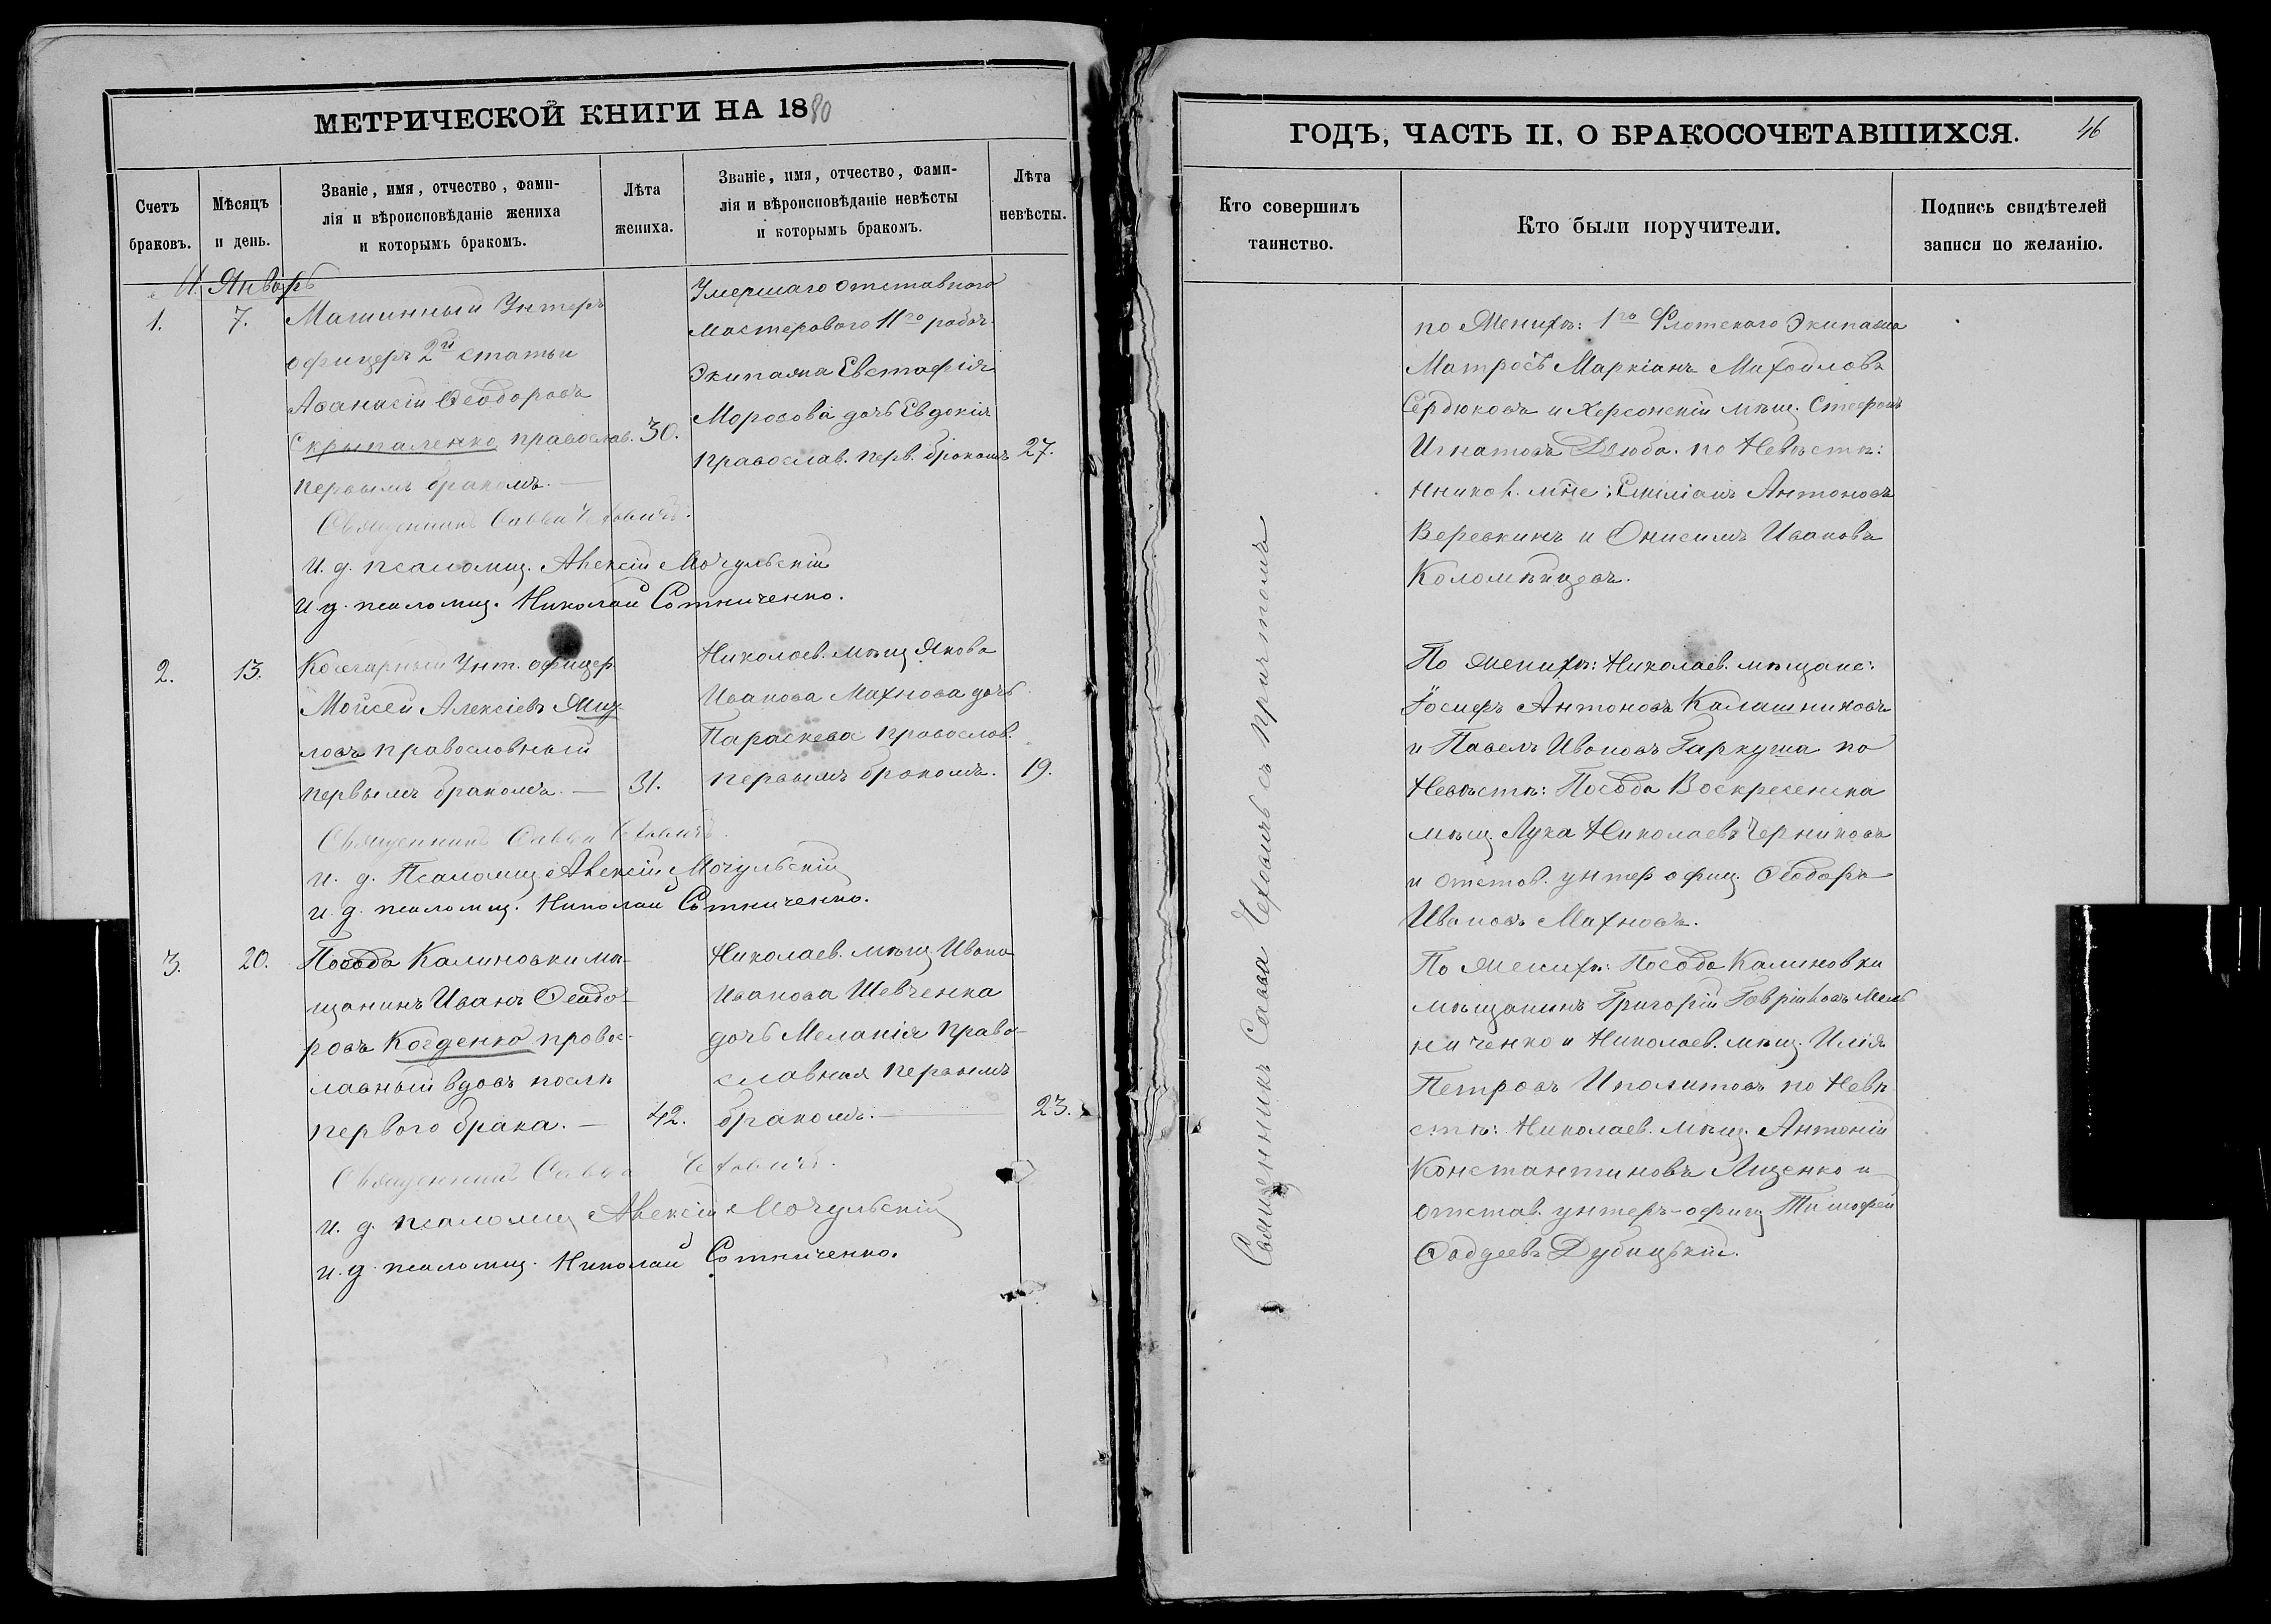 МЕТРИЧЕСКОЙ КНИГИ НА 1880
Счетъ браковъ.
Мѣсяцъ и день.
Званіе, имя, отчество, фами-
лія и вѣроисповѣданіе жениха
и которымъ бракомъ.
Лѣта жениха.
Званіе, имя, отчество, фами-
лія и вѣроисповѣданіе невѣсты
и которымъ бракомъ.
Лѣта невѣсты.
М. Январь
1.
7.
Машинный Унтеръ
офицеръ 2й статьи
Аѳанасій Ѳеодоровъ
Скрыпаленко православ.
первымъ бракомъ. —
30.
Умершаго отставного
мастероваго 11го рабоч.
Экипажа Евстафія
Морозова дочь Евдокія
православ. перв. бракомъ
27.
Священникъ Савва Чехович.
И. д. псаломщ. Алексій Мочульскій
И д. псаломщ. Николай Сотниченко.
2.
13.
Кочегарный Унт. офицер
Моисей Алексіевъ Жиз-
ловъ православный
первымъ бракомъ. —
31.
Николаев. мѣщ. Якова
Иванова Махнова дочь
Параскева православ.
первымъ бракомъ.
19.
Священникъ Савва Чехович.
И. д. Псаломщ. Алексій Мочульскій
и. д. псаломщ. Николай Сотниченко.
3.
20.
Посада Калиновки мѣ-
щанинъ Иванъ Ѳеодо-
ровъ Когденко правос-
лавный вдовъ послѣ
первого брака. —
42.
Николаев. мѣщ. Ивана
Иванова Шевченка
дочь Меланія Право-
славная первымъ
бракомъ. —
23.
Священникъ Савва Чехович.
И. д. псаломщ. Алексій Мочульскій
и. д. псаломщ. Николай Сотниченко.
ГОДЪ, ЧАСТЬ II, О БРАКОСОЧЕТАВШИХСЯ.
46
Кто совершилъ таинство.
Кто были поручители.
Подпись свидѣтелей
записи по желанію.
Священникъ Савва Чеховичъ съ причтомъ
по Женихѣ: 1го Флотскаго Экипажа
Матросъ Маркіанъ Михайловъ
Сердюковъ и Херсонскій мѣщ. Стефанъ
Игнатовъ Дзюба. по Невѣстѣ:
Никол. мѣще: Емиліанъ Антоновъ
Веревкинъ и Онисимъ Ивановъ
Коломѣйцевъ.
По Женихѣ: Николаев. мѣщане:
Іосифъ Антоновъ Калашниковъ
и Павелъ Ивановъ Гаркуша по
Невѣстѣ: Посада Воскресенска
мѣщ. Лука Николаевъ Черниковъ
и отстав. унтер офиц. Ѳеодоръ
Ивановъ Махновъ.
По Женихѣ: Посада Калиновки
мѣщанинъ Григорій Гавріиловъ Мель
ниченко и Николаев. мѣщ. Илія
Петровъ Иполитовъ по Невѣ
стѣ: Николаев. мѣщ. Антоній
Константиновъ Лиценко и
отстав. унтеръ-офиц. Тимофей
Ѳаддеевъ Дубицькій.